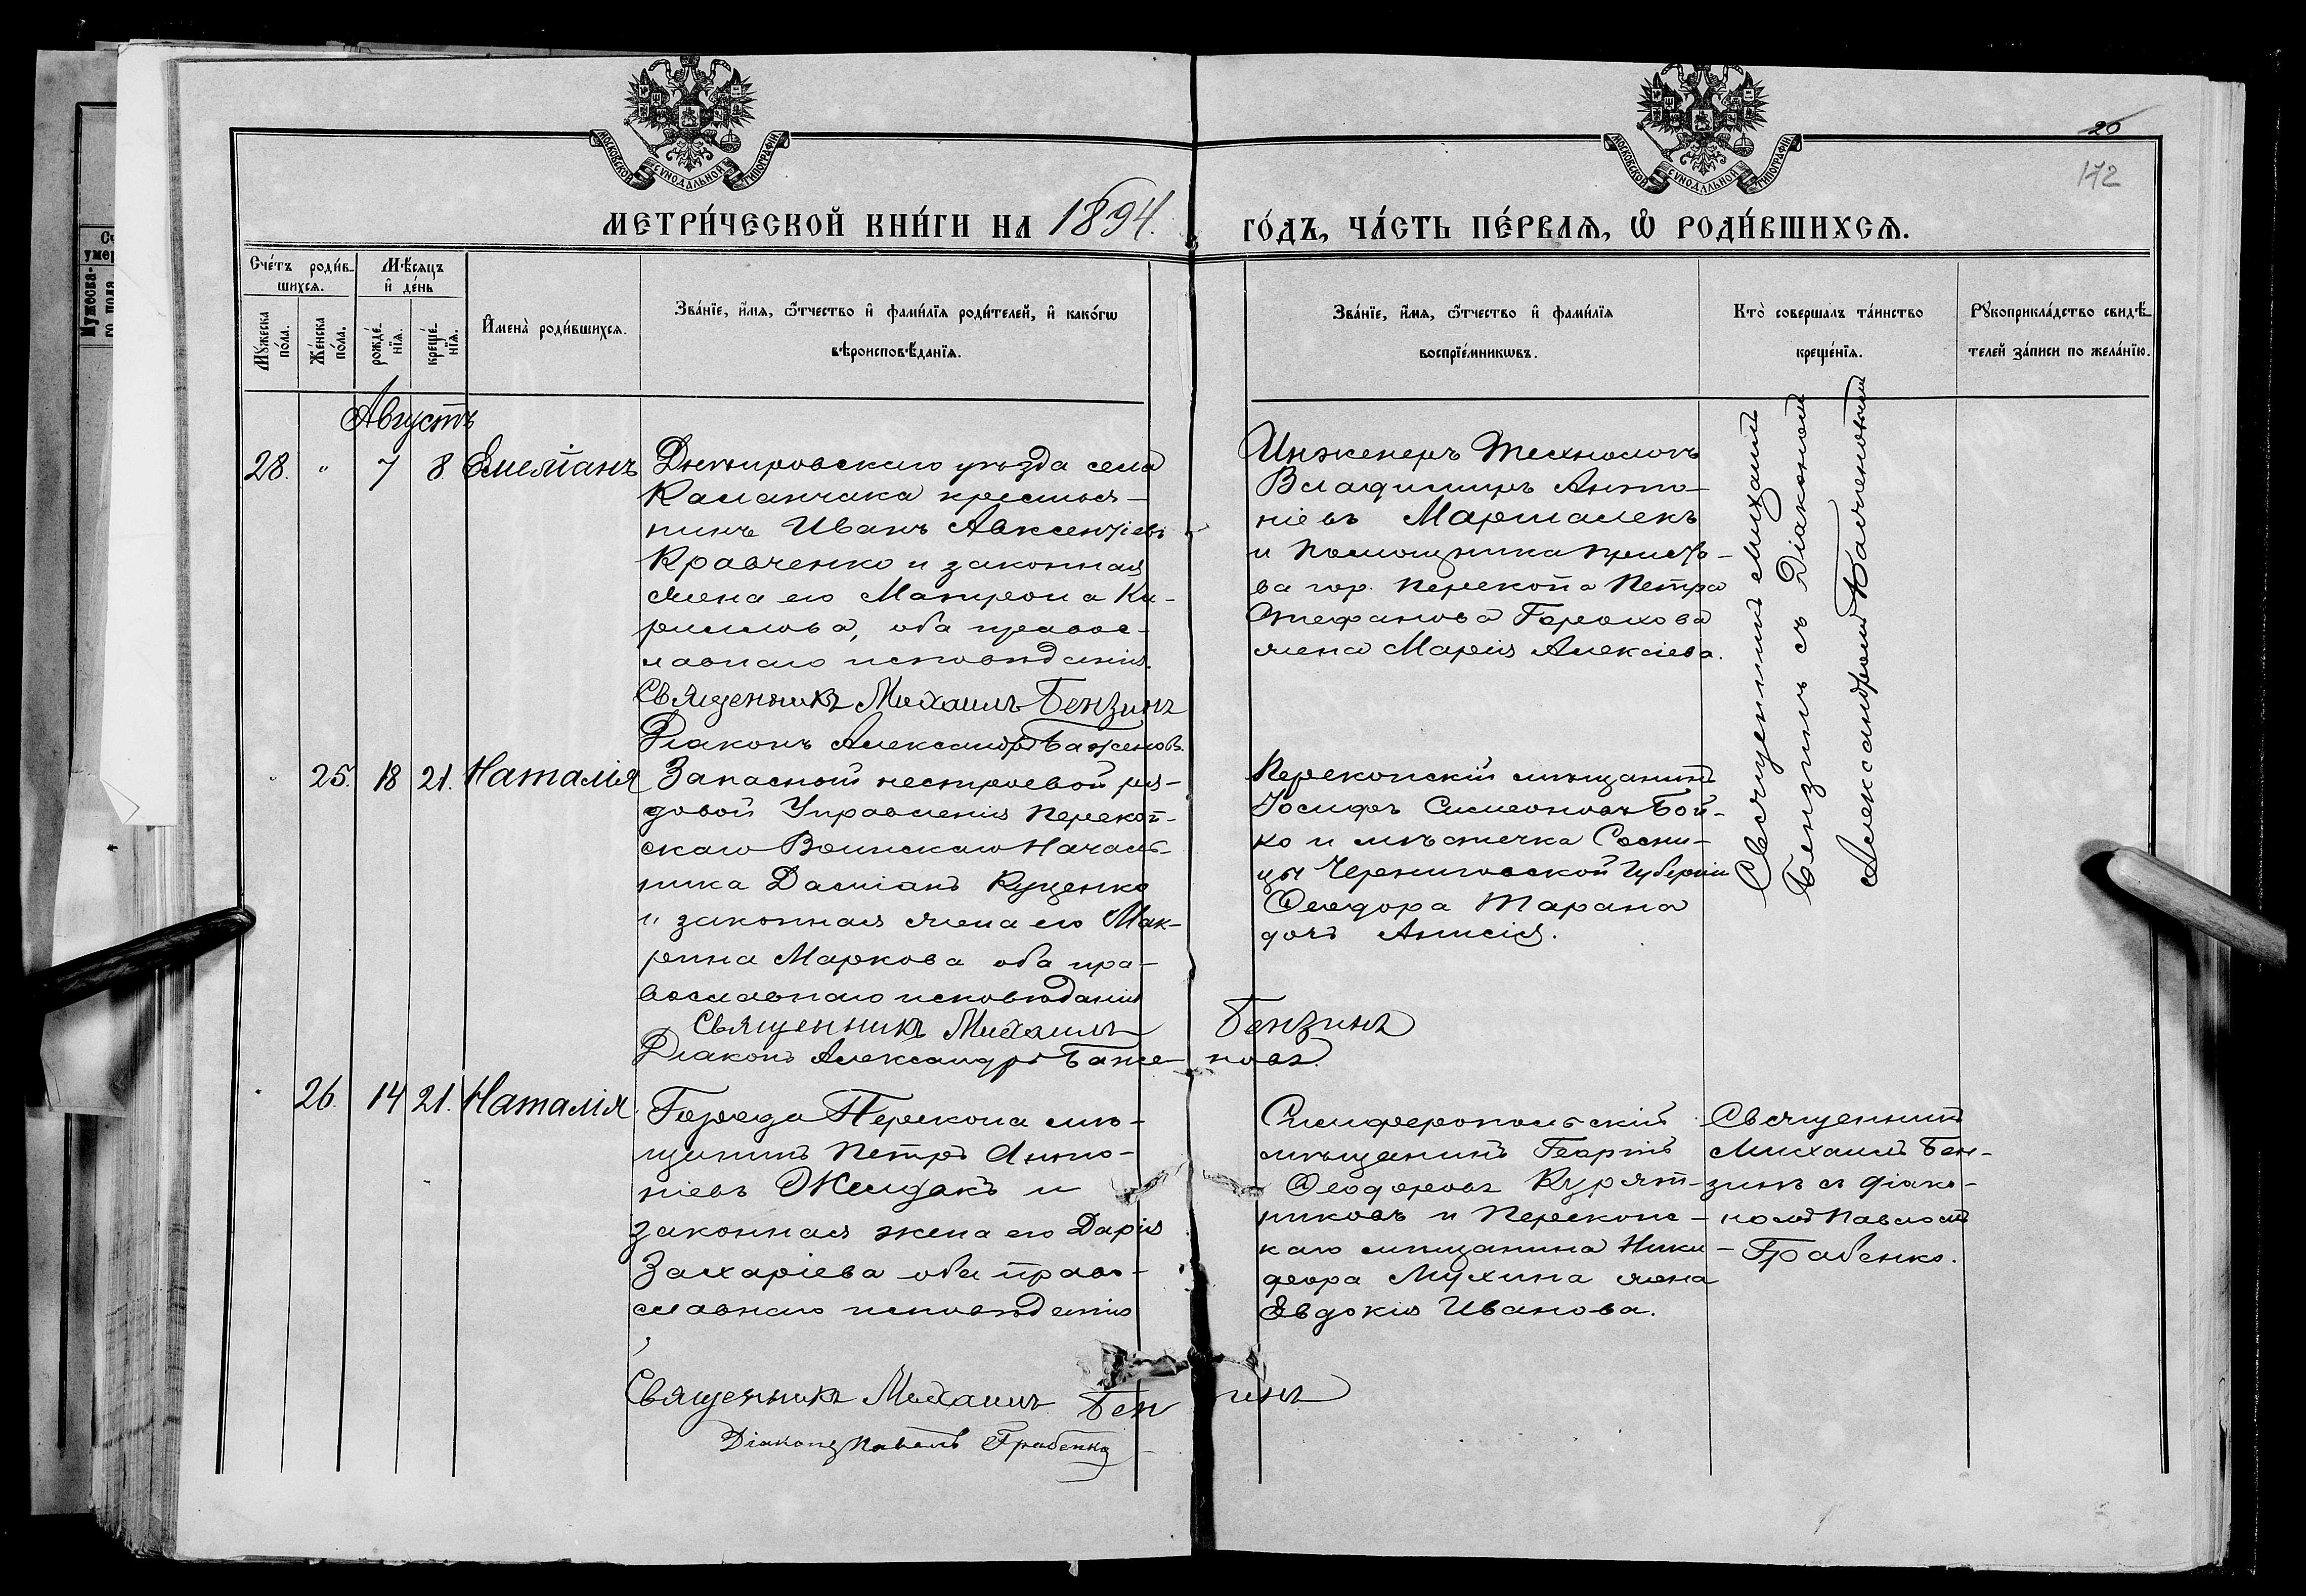 МОСКОВСКОЙ СѴНОДАЛЬНОЙ ТИПОГРАФІИ
МОСКОВСКОЙ СѴНОДАЛЬНОЙ ТИПОГРАФІИ
20
172
МЕТРИ́ЧЕСКОЙ КНИ́ГИ НА 1894. ГО́ДЪ, ЧА́СТЬ ПЕ́РВАѦ, Ѡ҆ РОДИ́ВШИХСѦ.
Сче́тъ роди́в-
шихсѧ.
Мꙋжеска
по́ла.
Же́нска
по́ла.
Мѣ́сѧцъ
и҆ де́нь
рожде́-
нїѧ.
креще́-
нїѧ.
И҆мена̀ роди́вшихсѧ.
Зва́нїе, и҆́мѧ, ѻ҆́тчество и҆ фами́лїѧ роди́телей, и҆ како́гѡ
вѣроисповѣ́данїѧ.
Зва́нїе, и҆́мѧ, ѻ҆́тчество и҆ фами́лїѧ
воспрїе́мникѡвъ.
Кто̀ соверша́лъ та́инство
креще́нїѧ.
Рꙋкоприкла́дство свидѣ́-
телей за́писи по жела́нїю.
Августъ
28. " 7 8 Емеліанъ
Днѣпровскаго уѣзда села
Каланчака крестья-
нинъ Иванъ Авксентіевъ
Кравченко и законная
жена его Матрона Ки-
риллова, оба правос-
лавнаго исповѣданія.
Священникъ Михаилъ Бензинъ
Діаконъ Александръ Баженовъ
Инженеръ Технологъ
Владимиръ Анто-
ніевъ Маршалекъ
и Помощника приста-
ва гор. Перекопа Петра
Стефанова Горохова
жена Марія Алексіева.
Священникъ Михаилъ
Бензинъ съ Діакономъ
Александромъ Баженовымъ
25. 18 21. Наталія
Запасной нестроевой ря-
довой Управленія Перекоп-
скаго Воинскаго Началь-
ника Даміанъ Куценко
и законная жена его Мак-
рина Маркова оба пра-
вославнаго исповѣданія
Священникъ Михаилъ Бензинъ
Діаконъ Александръ Баженовъ.
Перекопскій мѣщанинъ
Іосифъ Симеоновъ Бой-
ко и мѣстечка Сосни-
цы Черниговской Губерніи
Ѳеодора Тарана
дочь Анисія.
26. 14 21. Наталія
Города Перекопа мѣ-
щанинъ Петръ Анто-
ніевъ Жилдакъ и
законная жена его Дарія
Захаріева оба право-
славнаго исповѣданія
Священникъ Михаилъ Бензинъ
Діаконъ Павелъ Грабенко
Симферопольскій
мѣщанинъ Георгій
Ѳеодоровъ Курят-
никовъ и Перекопс-
каго мѣщанина Ники-
фора Мухина жена
Евдокія Иванова.
Священникъ
Михаилъ Бен-
зинъ съ діако-
номъ Павломъ
Грабенко.